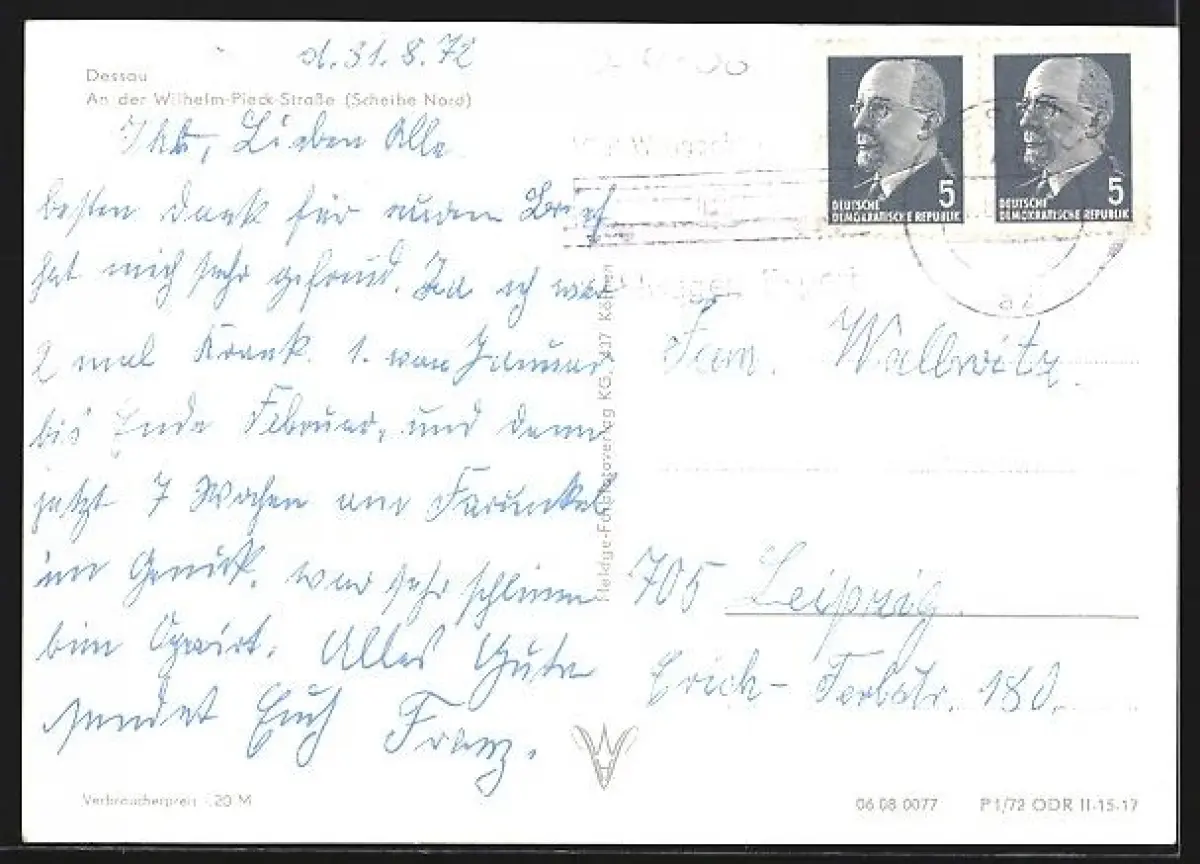 d. 31.8.72
Dessau
An der Wilhelm-Pieck-Straße (Scheibe Nord)
Ihr, Lieben Alle
besten Dank für euren Brief
hat mich sehr gefreud. Ja ich war
2 mal Krank. 1. von Januar
bis Ende Februar, und dann
jetzt 7 Wochen Furunkel
im Genick. war sehr schlimm
bin Alles Gute
sendet Euch Franz.
Verbraucherpreis -.20 M
Heldge-Fotografoverlag KG, 437 Köthen
DEUTSCHE
DEMOKRATISCHE REPUBLIK 5
DEUTSCHE
DEMOKRATISCHE REPUBLIK 5
az
Fam. Wallwitz.
705 Leipzig.
Erich-Ferlstr. 180.
06 08 0077 P 1/72 ODR II-15-17